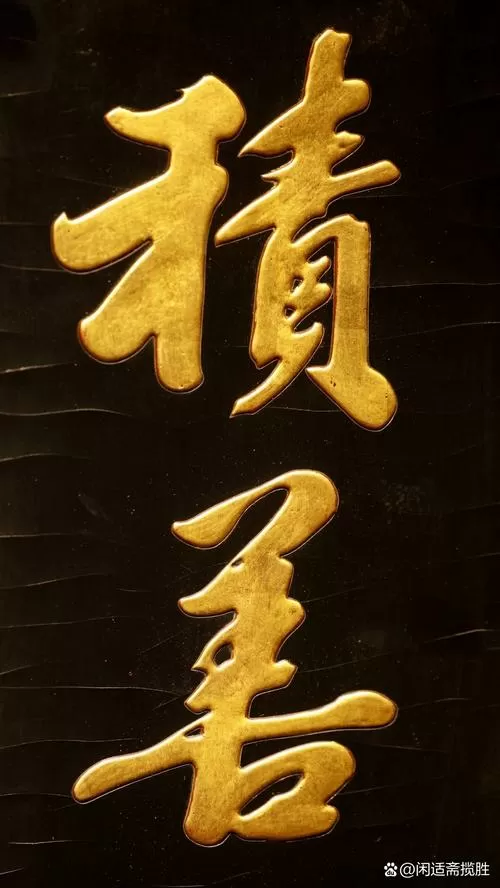 積
善
@闲适斋揽胜